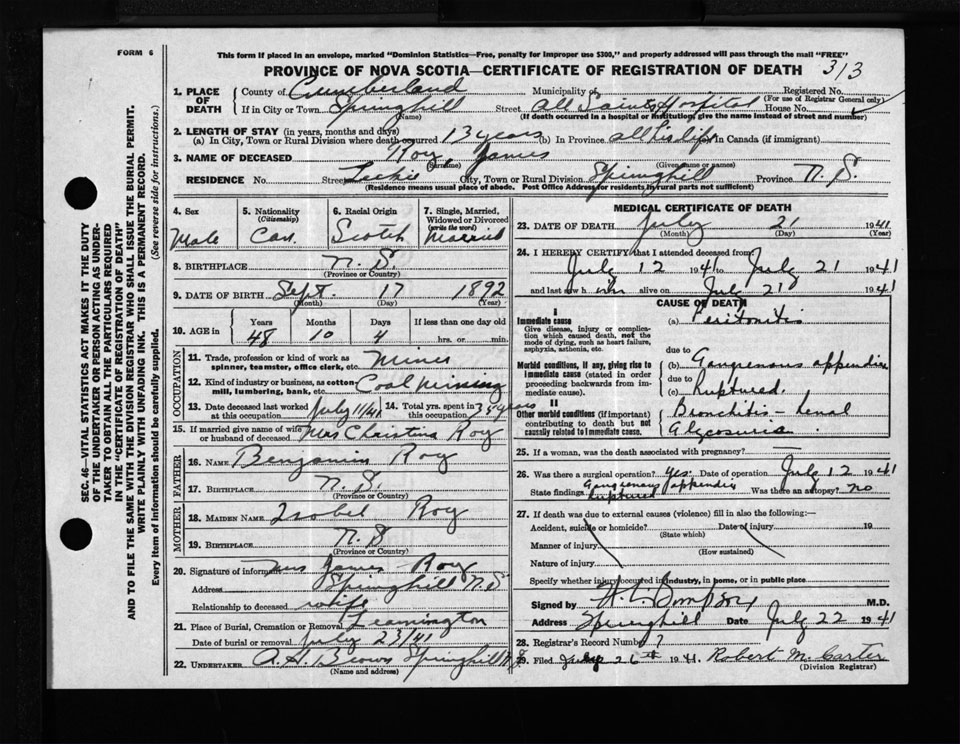 FORM 6
This form if placed in an envelope, marked "Dominion Statistics—Free, penalty for improper use $300," and properly addressed will pass through the mail "FREE"
PROVINCE OF NOVA SCOTIA—CERTIFICATE OF REGISTRATION OF DEATH 313
1. PLACE OF DEATH
County of Cumberland Municipality of Registered No.
(For use of Registrar General only)
If in City or Town Springhill Street All Saints Hospital House No.
(Name) (If death occurred in a hospital or institution, give the name instead of street and number)
2. LENGTH OF STAY (in years, months and days)
(a) In City, Town or Rural Division where death occurred 13 years (b) In Province all his life In Canada (if immigrant)
3. NAME OF DECEASED Roy, James
(Surname) (Given name or names)
RESIDENCE No. Street City, Town or Rural Division Springhill Province N. S.
(Residence means usual place of abode. Post Office Address for residents in rural parts not sufficient)
4. Sex Male
5. Nationality (Citizenship) Can.
6. Racial Origin Scotch
7. Single, Married, Widowed or Divorced (write the word) Married
8. BIRTHPLACE N. S.
(Province or Country)
9. DATE OF BIRTH Sept. 17 1892
(Month) (Day) (Year)
10. AGE in Years 48 Months 10 Days 4 If less than one day old hrs. or min.
OCCUPATION
11. Trade, profession or kind of work as spinner, teamster, office clerk, etc. Miner
12. Kind of industry or business, as cotton mill, lumbering, bank, etc. Coal Mining
13. Date deceased last worked at this occupation July 11/41 14. Total yrs. spent in this occupation 35 years
15. If married give name of wife or husband of deceased Mrs Christina Roy
FATHER
16. NAME Benjamin Roy
17. BIRTHPLACE N. S.
(Province or Country)
MOTHER
18. MAIDEN NAME Isobel Roy
19. BIRTHPLACE N. S
(Province or Country)
20. Signature of informant Mrs James Roy
Address Springhill N. S
Relationship to deceased wife
21. Place of Burial, Cremation or Removal Leamington
Date of burial or removal July 23/41
22. UNDERTAKER A. H. Brown Springhill N. S
(Name and address)
MEDICAL CERTIFICATE OF DEATH
23. DATE OF DEATH July 21 1941
(Month) (Day) (Year)
24. I HEREBY CERTIFY that I attended deceased from:
July 12 1941 to July 21 1941
and last saw h im alive on July 21 1941
CAUSE OF DEATH
I
Immediate cause (a) Peritonitis
Give disease, injury or complication which caused death, not the mode of dying, such as heart failure, asphyxia, asthenia, etc.
due to
Morbid conditions, if any, giving rise to immediate cause (stated in order proceeding backwards from immediate cause). (b) Gangrenous appendix
due to
(c) Ruptured.
II
Other morbid conditions (if important) contributing to death but not causally related to immediate cause. Bronchitis — renal
Glycosuria.
25. If a woman, was the death associated with pregnancy?
26. Was there a surgical operation? yes. Date of operation July 12 1941
State findings Gangrenous appendix ruptured Was there an autopsy? no
27. If death was due to external causes (violence) fill in also the following:—
Accident, suicide or homicide? Date of injury 19
(State which)
Manner of injury
(How sustained)
Nature of injury
Specify whether injury occurred in industry, in home, or in public place
Signed by Simpson M.D.
Address Springhill Date July 22 1941
28. Registrar's Record Number 7
29. Filed July 26th 1941. Robert M. Carter
(Division Registrar)
SEC. 46—VITAL STATISTICS ACT MAKES IT THE DUTY
OF THE UNDERTAKER OR PERSON ACTING AS UNDER-
TAKER TO OBTAIN ALL THE PARTICULARS REQUIRED
IN THE "CERTIFICATE OF REGISTRATION OF DEATH"
AND TO FILE THE SAME WITH THE DIVISION REGISTRAR WHO SHALL ISSUE THE BURIAL PERMIT.
WRITE PLAINLY WITH UNFADING INK. THIS IS A PERMANENT RECORD.
Every item of information should be carefully supplied. (See reverse side for instructions.)